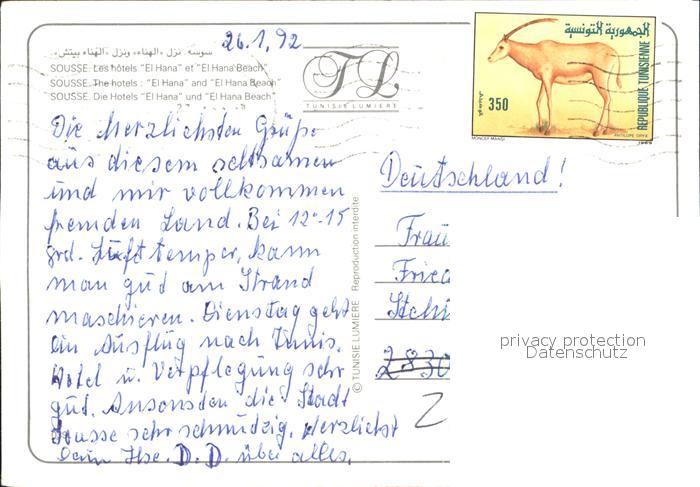 26.1.92
سوسه. نزل «الهناء» ونزل «الهناء بيتش».
SOUSSE. Les hôtels "El Hana" et "El Hana Beach"
SOUSSE. The hotels : "El Hana" and "El Hana Beach"
SOUSSE. Die Hotels "El Hana" und "El Hana Beach"
TL
TUNISIE LUMIERE
الجمهورية التونسية
REPUBLIQUE TUNISIENNE
350
ANTILOPE ORYX
1989
Die herzlichsten Grüße
aus diesem seltsamen
und mir vollkommen
fremden Land. Bei 12°-15
grd. Lufttemper, kann
man gud am Strand
maschieren. Dienstag geht
ein Ausflug nach Tunis.
Hotel u. Verpflegung sehr
gud. Ansonsden die Stadt
Sousse sehr schmudzig. Herzlichst
Dein Ilse. D. D. über alles.
© TUNISIE LUMIERE Reproduction interdite
Deutschland!
Frau
Fried
Stehi
2830
2
privacy protection
Datenschutz